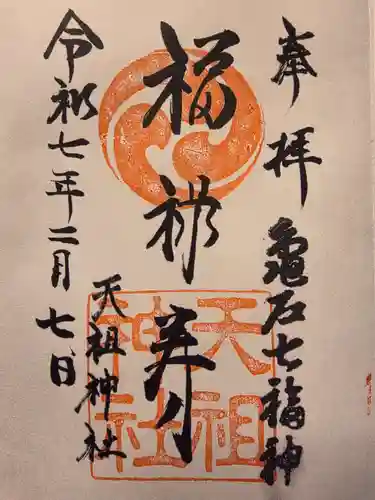 奉拝
亀石七福神
福禄寿
天祖神社
天祖神社
令和七年二月七日